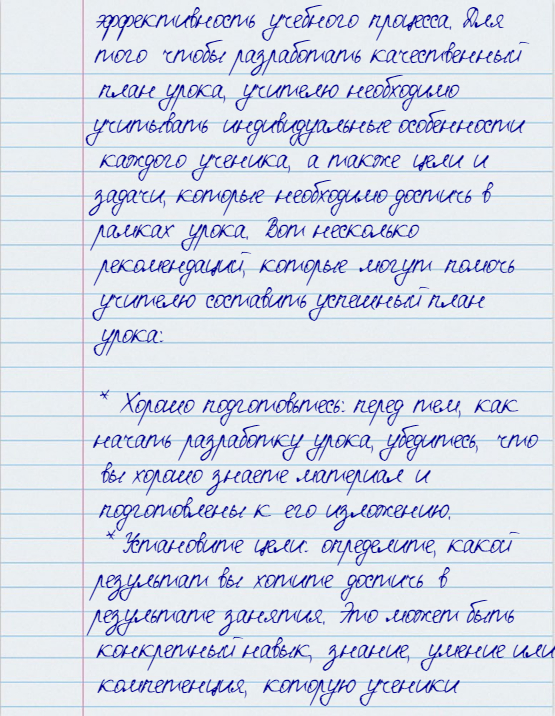 эффективность учебного процесса. Для
того чтобы разработать качественный
план урока, учителю необходимо
учитывать индивидуальные особенности
каждого ученика, а также цели и
задачи, которые необходимо достичь в
рамках урока. Вот несколько
рекомендаций, которые могут помочь
учителю составить успешный план
урока:
* Хорошо подготовьтесь: перед тем, как
начать разработку урока, убедитесь, что
вы хорошо знаете материал и
подготовлены к его изложению.
* Установите цели: определите, какой
результат вы хотите достичь в
результате занятия. Это может быть
конкретный навык, знание, умение или
компетенция, которую ученики